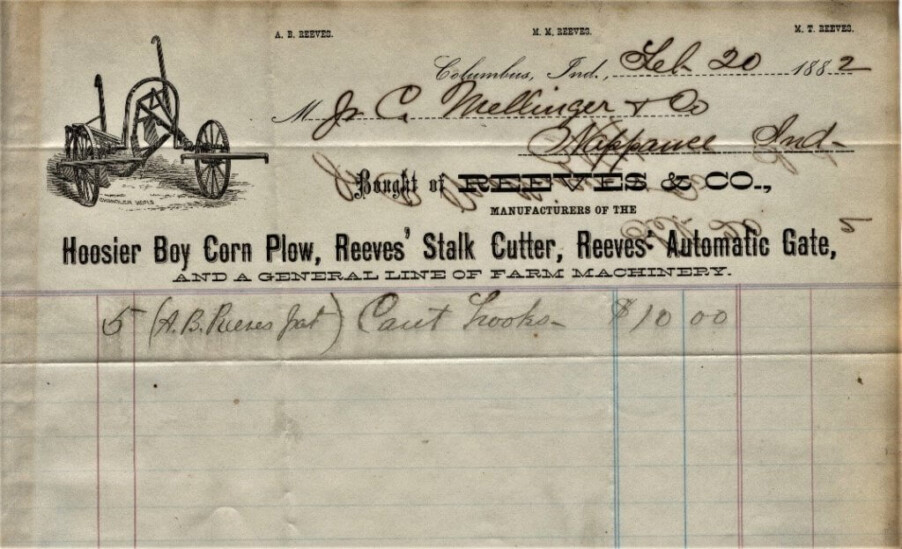 A. B. REEVES. M. M. REEVES. M. T. REEVES.
Columbus, Ind., Feb 20 1882
M Jr C. Mellinger & Co
Nappanee Ind-
Bought of REEVES & CO.,
MANUFACTURERS OF THE
Hoosier Boy Corn Plow, Reeves' Stalk Cutter, Reeves' Automatic Gate,
AND A GENERAL LINE OF FARM MACHINERY.
5 (A.B. Reeves Pat) Cant hooks- $10 00